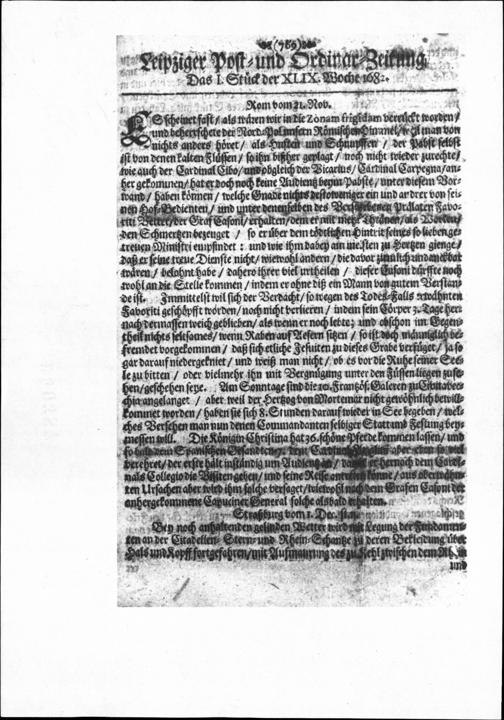 (789)
Leipziger Post- und Ordinar-Zeitung.
Das I. Stück der XLIX. Woche 1682.
Rom vom 21. Nov.
ES scheinet fast / als wären wir in die Zonam frigidam verrückt worden /
und beherrschete der Nord-Pol unsern Römischen Himmel / weil man von
nichts anders höret / als Husten und Schnupffen / der Pabst selbst
ist von denen kalten Flüssen / so ihn bißher geplagt / noch nicht wieder zurechte /
wie auch der Cardinal Cibo / und obgleich der Vicarius / Cardinal Carpegna / an-
her gekommen / hat er doch noch keine Audientz beym Pabste / unter diesem Vor-
wand / haben können / welche Gnade nichts destoweniger ein und andrer von sei-
nen Hof-Bedienten / und unter denenselben des Verstorbenen Prälaten Favo-
riti Vetter / der Graf Casoni / erhalten / dem er mit mehr Thränen / als Worten /
den Schmertzen bezeuget / so er über dem tödtlichen Hintrit seines so lieben ge-
treuen Ministri empfindet : und wie ihm dabey am meisten zu Hertzen gienge /
daß er seine treue Dienste nicht / wiewohl andern / die davor undanckbar
wären / belohnt habe / dahero ihrer viel urtheilen / dieser Casoni dürffte noch
wohl an die Stelle kommen / indem er ohne diß ein Mann von gutem Verstan-
de ist. Immittelst wil sich der Verdacht / so wegen des Todes-Falls erwähnten
Favoriti geschöpfft worden / noch nicht verlieren / indem sein Cörper 3. Tage her-
nach dermassen weich geblieben / als wenn er noch lebte; und obschon im Gegen-
theil nichts seltsames / wenn Raben auf Aesern sitzen / so ist doch männiglich be-
fremdet vorgekommen / daß sich etliche Jesuiten zu dieses Grabe verfüget / ja so
gar darauf niedergekniet / und weiß man nicht / ob es vor die Ruhe seiner See-
le zu bitten / oder vielmehr ihn mit Vergnügung unter den Füssen liegen zuse-
hen / geschehen seye. Am Sonntage sind die 20. Frantzös. Galeren zu Civitavec-
chia angelanget / aber weil der Hertzog von Mortemar nicht gewöhnlich bewill-
kommet worden / haben sie sich 8. Stunden darauf wieder in See begeben / wel-
ches Versehen man von denen Commandanten selbiger Statt und Festung bey-
messen will. Die Königin Christina hat 36. schöne Pferde kommen lassen / und
so bald dem Spanischen Gesandten 7. dem Cardinal aber eben so viel
verehret / der erste hält inständig um Audientz an / damit er hernach dem Cardi-
nals Collegio die Visiten geben / und seine Reise antreten könne / aus überwähn-
ten Ursachen aber wird ihm solche versaget / wiewohl nach dem Grafen Casoni der
anhergekommene Capuciner General solche alsbald erhalten.
Straßburg vom 1. Dec. st. n.
Bey noch anhaltenden gelinden Wetter wird mit Legung der Fundamen-
ten an der Citadellen- Stern- und Rhein-Schantze zu deren Bekleidung über
Hals und Kopff fortgefahren / mit Aufmaurung des zu Kehl zwischen dem Rhein
und